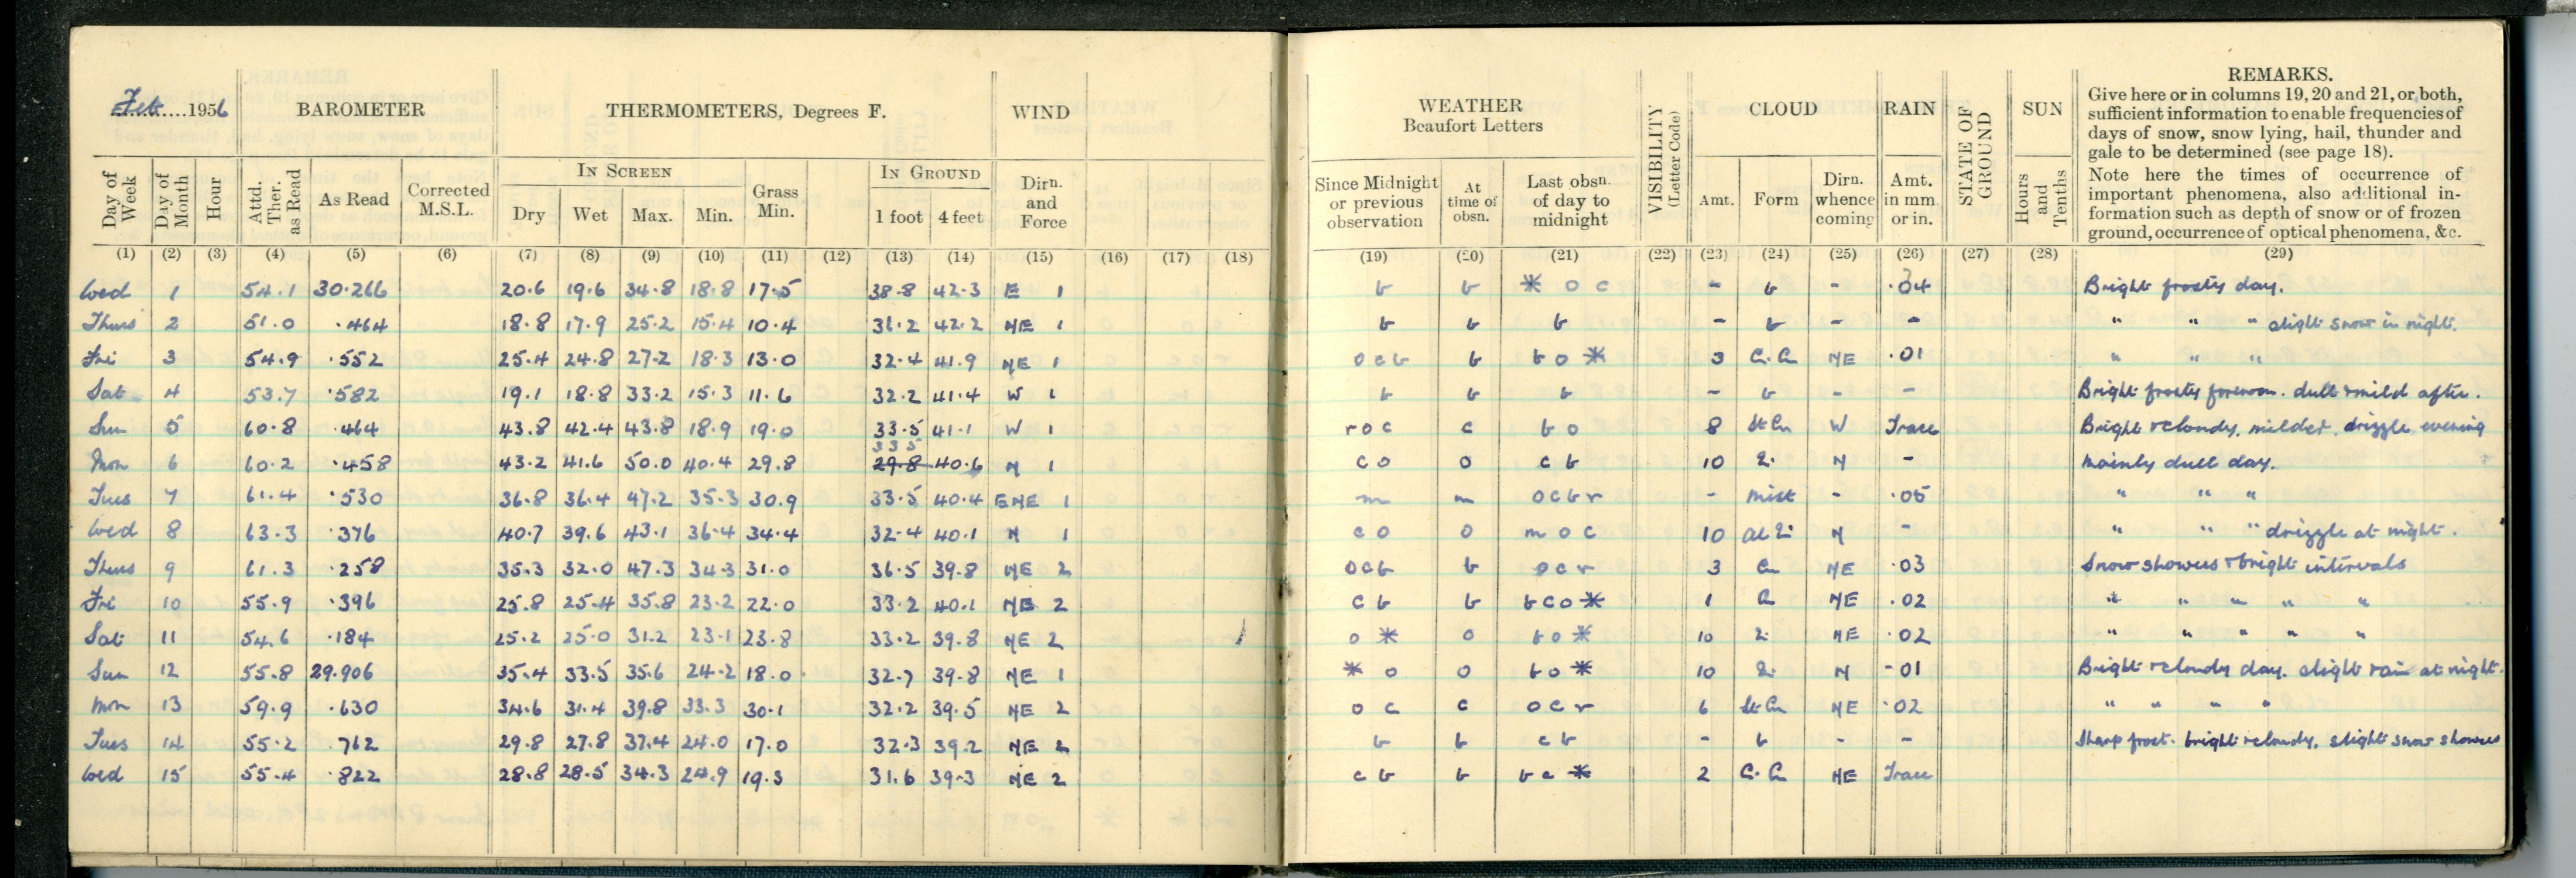 Feb. 1956
BAROMETER
THERMOMETERS, Degrees F.
WIND
Day of Week
Day of Month
Hour
Attd. Ther. as Read
As Read
Corrected M.S.L.
IN SCREEN
Dry
Wet
Max.
Min.
Grass Min.
IN GROUND
1 foot
4 feet
Dirn. and Force
(1) (2) (3) (4) (5) (6) (7) (8) (9) (10) (11) (12) (13) (14) (15) (16) (17) (18)
Wed 1 54.1 30.266 20.6 19.6 34.8 18.8 17.5 38.8 42.3 E 1
Thurs 2 51.0 .464 18.8 17.9 25.2 15.4 10.4 31.2 42.2 NE 1
Fri 3 54.9 .552 25.4 24.8 27.2 18.3 13.0 32.4 41.9 NE 1
Sat 4 53.7 .582 19.1 18.8 33.2 15.3 11.6 32.2 41.4 W 1
Sun 5 60.8 .464 43.8 42.4 43.8 18.9 19.0 33.5 41.1 W 1
33.5
Mon 6 60.2 .458 43.2 41.6 50.0 40.4 29.8 29.8 40.6 N 1
Tues 7 61.4 .530 36.8 36.4 47.2 35.3 30.9 33.5 40.4 ENE 1
Wed 8 63.3 .376 40.7 39.6 43.1 36.4 34.4 32.4 40.1 N 1
Thurs 9 61.3 .258 35.3 32.0 47.3 34.3 31.0 36.5 39.8 NE 2
Fri 10 55.9 .396 25.8 25.4 35.8 23.2 22.0 33.2 40.1 NE 2
Sat 11 54.6 .184 25.2 25.0 31.2 23.1 23.8 33.2 39.8 NE 2
Sun 12 55.8 29.906 35.4 33.5 35.6 24.2 18.0 32.7 39.8 NE 1
Mon 13 59.9 .630 34.6 31.4 39.8 33.3 30.1 32.2 39.5 NE 2
Tues 14 55.2 .762 29.8 27.8 37.4 24.0 17.0 32.3 39.2 NE 2
Wed 15 55.4 .822 28.8 28.5 34.3 24.9 19.3 31.6 39.3 NE 2
WEATHER
Beaufort Letters
Since Midnight or previous observation
At time of obsn.
Last obsn. of day to midnight
VISIBILITY (Letter Code)
CLOUD
Amt.
Form
Dirn. whence coming
RAIN
Amt. in mm. or in.
STATE OF GROUND
SUN
Hours and Tenths
REMARKS.
Give here or in columns 19, 20 and 21, or both,
sufficient information to enable frequencies of
days of snow, snow lying, hail, thunder and
gale to be determined (see page 18).
Note here the times of occurrence of
important phenomena, also additional in-
formation such as depth of snow or of frozen
ground, occurrence of optical phenomena, &c.
(19) (20) (21) (22) (23) (24) (25) (26) (27) (28) (29)
b b * o c - b - .04 Bright frosty day.
b b b - b - - " " " slight snow in night.
o c b b b o * 3 NE .01 " " "
b b b - b - - Bright frosty forenoon. dull & mild after.
r o c c b o 8 St Cu W Trace Bright & cloudy. milder. drizzle evening
c o o c b 10 N - Mainly dull day.
m m o c b r - mist - .05 " " "
c o o m o c 10 N - " " " drizzle at night.
o c b b o c r 3 Cu NE .03 Snow showers & bright intervals
c b b b c o * 1 NE .02 " " " " "
o * o b o * 10 NE .02 " " " " "
* o o b o * 10 N .01 Bright & cloudy day. slight rain at night.
o c c o c r 6 St Cu NE .02 " " " "
b b c b - b - - Sharp frost. bright & cloudy, slight snow showers
c b b b c * 2 NE Trace